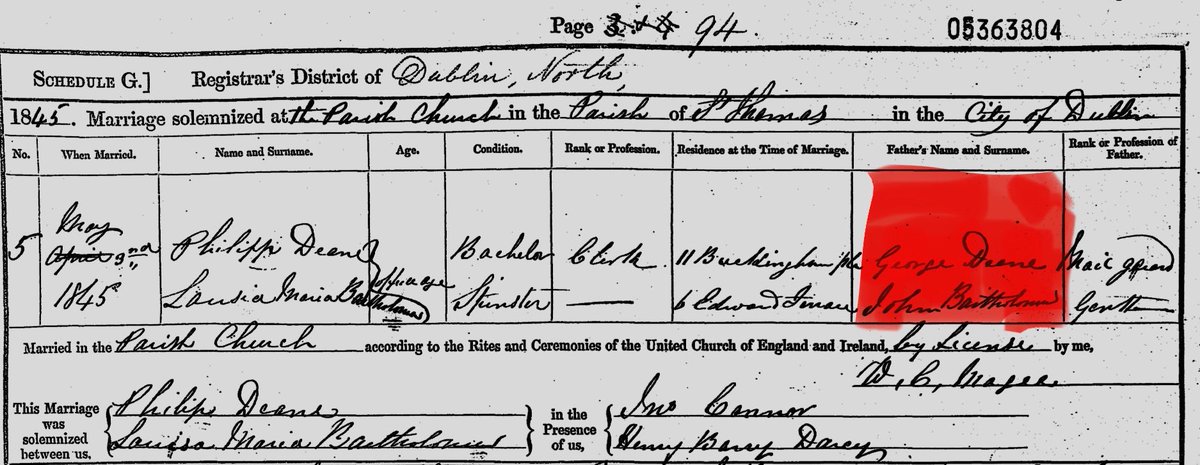 Page 94.
05363804
SCHEDULE G.] Registrar's District of Dublin, North,
1845. Marriage solemnized at the Parish Church in the Parish of St Thomas in the City of Dublin
No. When Married. Name and Surname. Age. Condition. Rank or Profession. Residence at the Time of Marriage. Father's Name and Surname. Rank or Profession of Father.
May
5 April Philipp Deane of full age Bachelor Clerk 11 Buckingham George Deane Mail guard
1845 Maria Bartholomus Spinster — 6 Edward Terrace John Bartholomus
Married in the Parish Church according to the Rites and Ceremonies of the United Church of England and Ireland, by License by me,
W. C. Magee
This Marriage was solemnized between us, Philip Deane in the Presence of us, Jno Connor
Louisa Maria Bartholomus Henry Barry Darcy